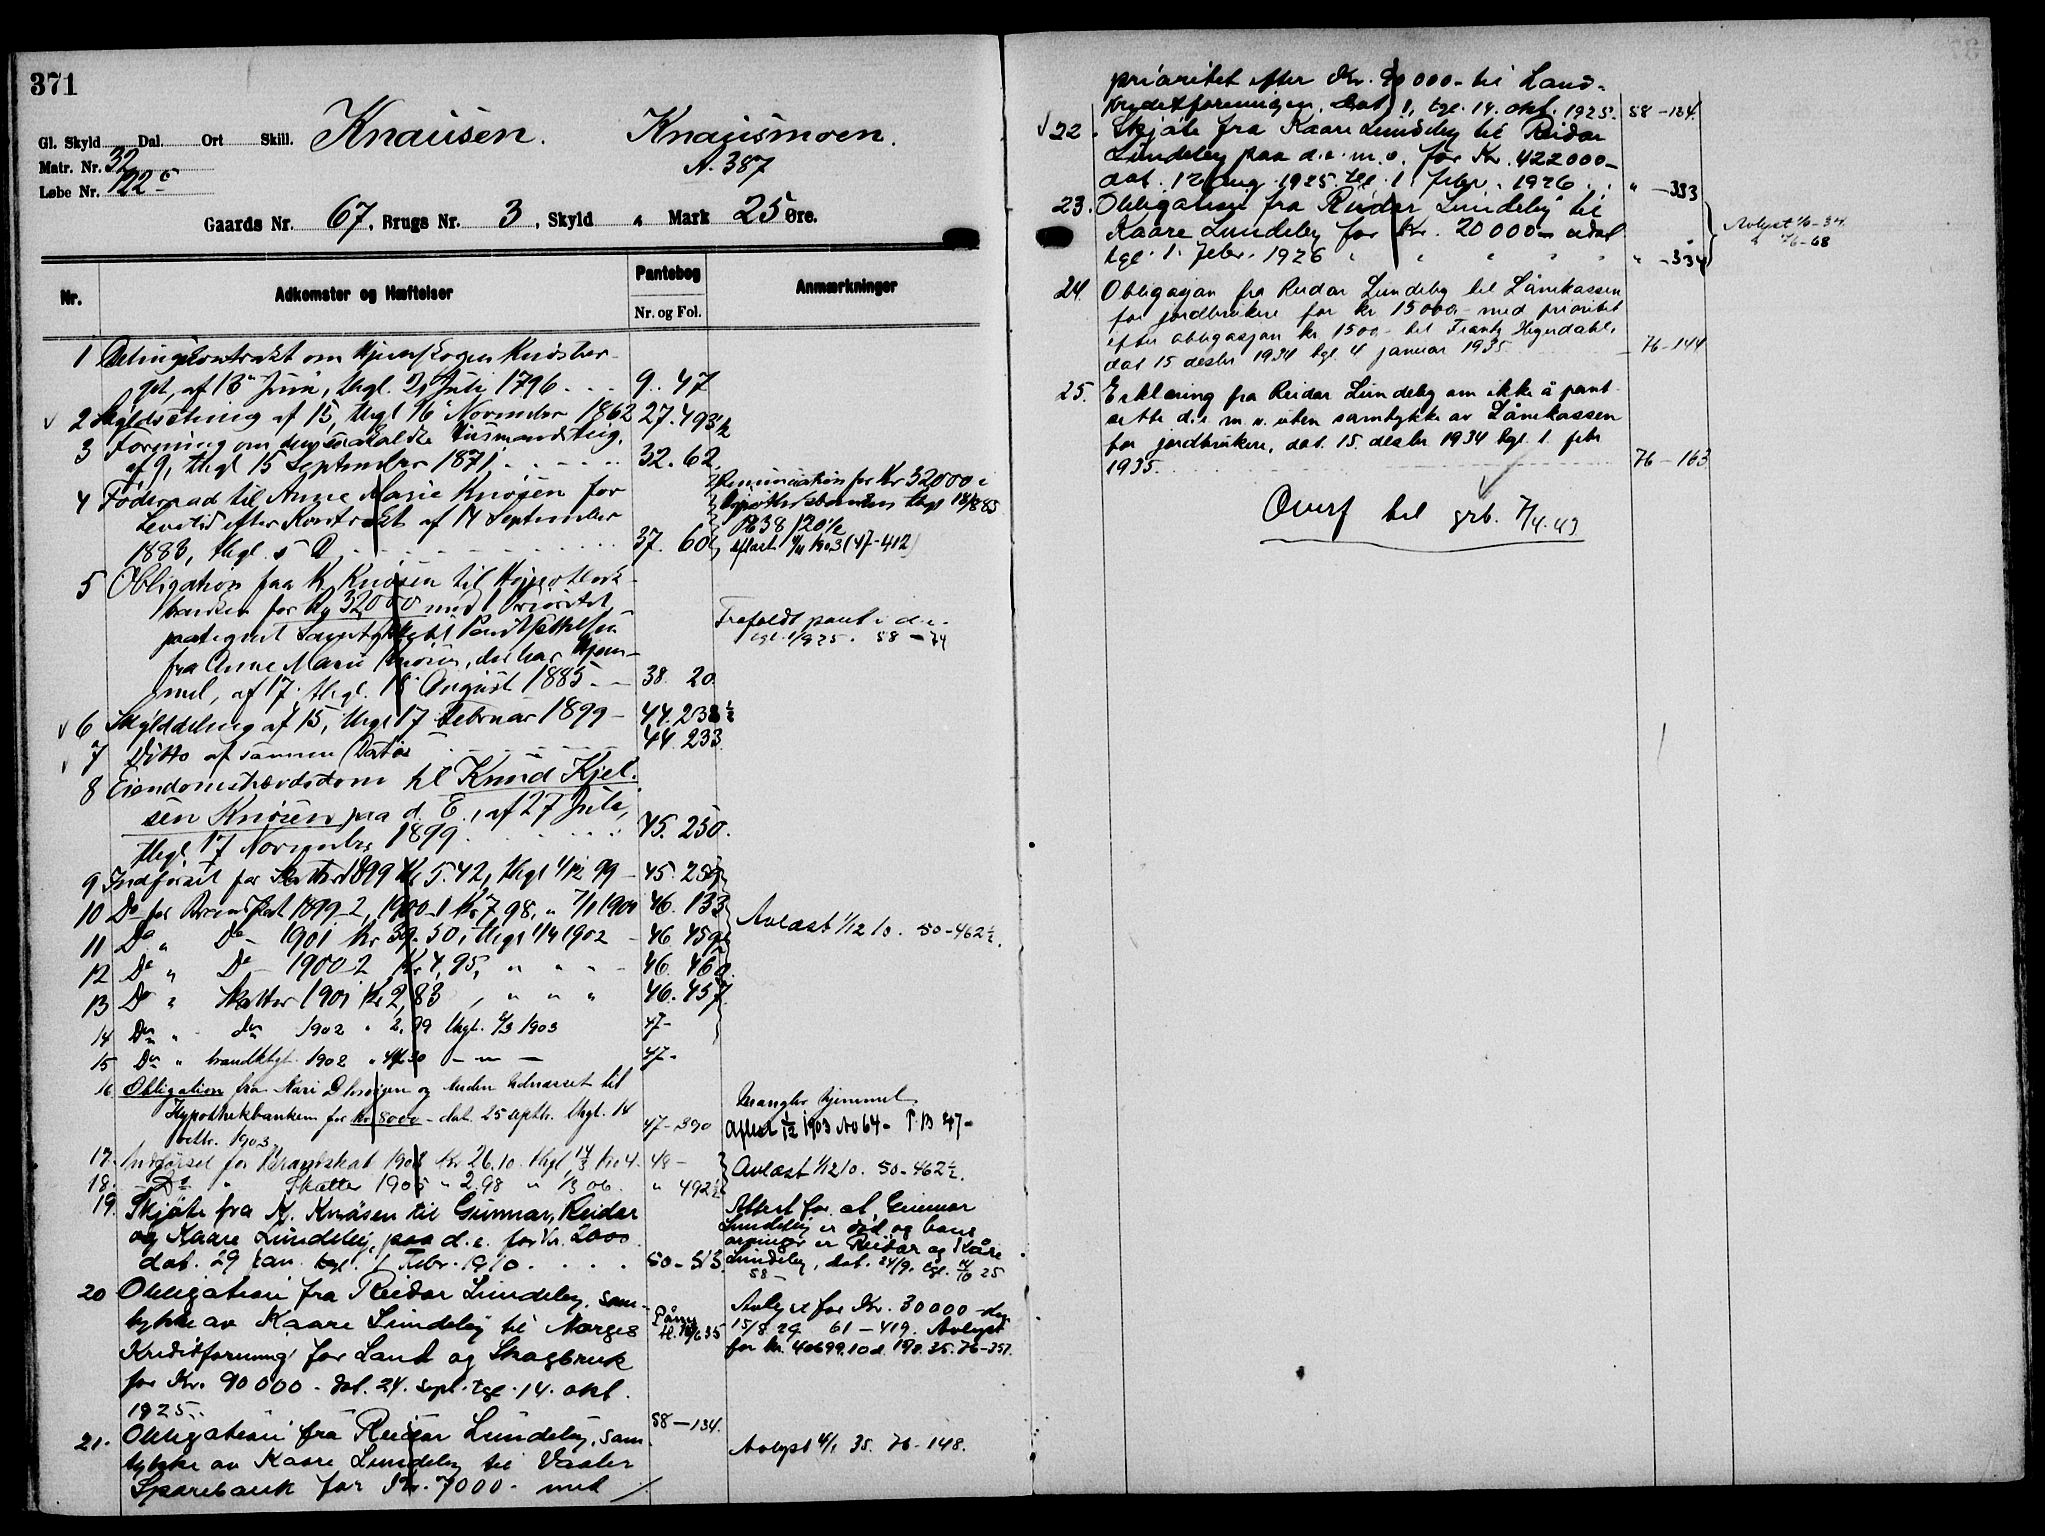 371
Gl. Skyld Dal. Ort Skill. Knausen. Knausmoen.
Matr. Nr. 32
Løbe Nr. 122 c
N. 387
Gaards Nr. 67, Brugs Nr. 3, Skyld „ Mark 25 Øre.
Nr. Adkomster og Hæftelser Pantebog Anmærkninger
Nr. og Fol.
1 Delingskontrakt om Hjemskogen Knösber-
get, af 13 Juni, thgl. 2 Juli 1796. . . 9. 47
2 Skyldsetning af 15, thgl 16 November 1862 27. 493½
3 Forening om den saakaldte Husmandseng,
af 9, thgl 15 September 1871. . . . . 32. 62.
4 Föderaad til Anne Marie Knösen for
Levetid efter Kontrakt af 14 September
1883, thgl. s D. . . . . 37. 60
Renunciation for Kr 32000 i
Hypothekbanken thgl 18/8 85
Pb 38 / 20½
Aflæst 1903 (47-412)
5 Obligation fra K. Knösen til Hypothek-
banken for Kr 32000 med 1 Prioritet,
paategnet Samtykke til Pantsættelsen
fra Anne Marie Knösen, der har Hjem-
mel, af 17. thgl. 18 August 1885 - - 38. 20
Frafaldt pant i d.e.
tgl. 1/9 25. 58-74
6 Skylddeling af 15, thgl 17 Februar 1899 - 44. 238½
7 Ditto af samme Dato - - - - 44. 233
8 Eiendomshævdsdom til Knud Kjel-
sen Knösen paa d. E., af 27 Juli,
thgl 17 November 1899. . . . . 45. 250.
9 Indförsel for Skatter 1899 Kr 5.42, thgl 1/12 99 - 45. 259
10 Do for Brandkont 1899-2, 1900-1 Kr 7,98, „ 7/1 1901 46. 133
11 Do „ Do - 1901 Kr 39.50, thgl 1/4 1902 - 46. 459
12 Do „ Do - 1900-2 Kr 4,95, „ „ „ - 46. 460.
13 Do „ Skatter 1901 Kr 2,83, „ „ „ 46. 457.
Avlæst 1/12 10. 50-462½.
14 Do „ do 1902 „ 2.99 thgl. 6/3 1903 47-
15 Do „ brandktgt. 1902 „ - „ - 47-
16 Obligation fra Kari Knösen og
Hypothekbanken for Kr 8000 - dat. 25 septbr. thgl. 14
octbr. 1903. 47-390
Mangler hjemmel.
Aflæst 1/12 1903 No 64 - P.B 47-
17. Indförsel for Brandskat 1903 Kr 26.10. thgl 14/3 1904. 48-
18. - Do „ Skatter 1905 „ 2.98 „ 1/3 06. „ 492½
Avlæst 1/12 10. 50-462½.
19. Skjöte fra K. Knösen til Gunnar, Reidar
og Kaare Lundeby, paa d.e. for Kr. 2000
dat. 29 jan. tgl. 1 Febr. 1910. . . . 50-513.
Attest for at Gunnar
Lundeby er død og hans
arvinger er Reidar og Kåre
Lundeby, dat. 24/9. tgl. 14/10 25
58-
20 Obligation fra Reidar Lundeby, sam-
tykke av Kaare Lundeby til Norges
Kreditforening for Land og Skogbruk
for Kr. 90000 - dat. 24. sept. tgl. 14. okt.
1925. 58-134.
Avlyst for Kr. 30000 - dag
15/8 29 61-419. Avlyst
for kr. 40699.10 d. 19/8. 35. 76-357.
21. Obligation fra Reidar Lundeby, sam-
tykke av Kaare Lundeby til Vaaler
Sparebank for Kr. 7000 - med /
Avlyst 4/1 35. 76-148.
prioritet efter Kr. 90000 - til Land-
kreditforeningen. Dat. , tgl. 14. okt. 1925. 58-134.
22. Skjöte fra Kaare Lundeby til Reidar
Lundeby paa d.e. m.v. for Kr. 422000 -
dat. 12 aug. 1925. tgl. 1. febr. 1926. . „ -333
23. Obligation fra Reidar Lundeby til
Kaare Lundeby for Kr. 20000 - udat
tgl. 1. febr. 1926 „ „ „ „ „ „ -334
24. Obligasjon fra Reidar Lundeby til Lånekassen
for jordbrukere for kr 15000 - med prioritet
efter obligasjon kr. 1500 - til Frantz Hegerdahl,
dat 15 desbr 1934 tgl. 4 januar 1935 76-144
25. Erklæring fra Reidar Lundeby om ikke å pant-
sette d.e m.v. uten samtykke av Lånekassen
for jordbrukere, dat. 15. desbr 1934 tgl. 1. febr
1935. 76-163
Overf til grb. 7/4-43